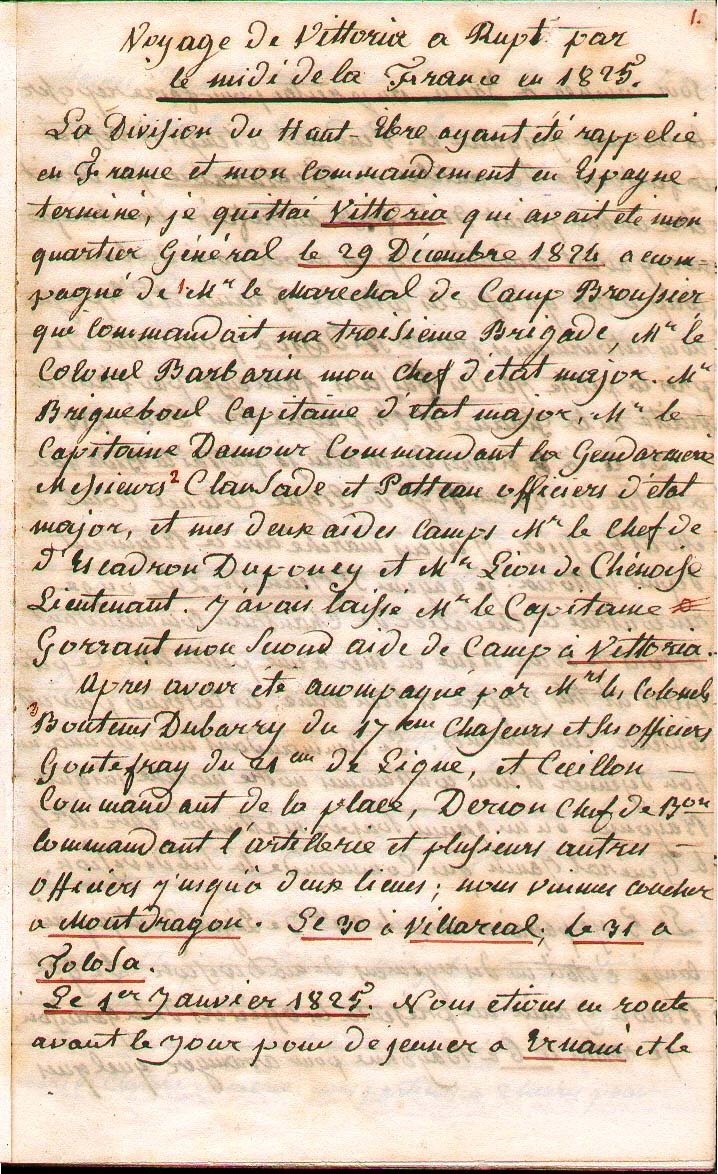 1.
Voyage de Vittoria a Rupt par
le midi de la France en 1825.
La Division du Haut-Ebre ayant été rappelié
en France et mon Commandement en Espagne
terminé, je quittai Vittoria qui avait été mon
quartier Général le 29 Décembre 1824 acom-
pagné de 1 Mr le Marechal de Camp Broussier
qui Commandait ma troisieme Brigade, Mr le
Colonel Barbarin mon chef d'état major. Mr
Brigueboul Capitaine d'état major, Mr le
Capitaine Damour Commandant la Gendarmerie
Messieurs 2 Clausade et Potteau officiers d'état
major, et mes deux aides Camps Mr le Chef de
d'Escadron Dupouey et Mr Léon de Chénoise
Lieutenant. J'avais laissé Mr le Capitaine
Gorrant mon second aide de Camp à Vittoria.
Après avoir été acompagné par Mrs les Colonels
3 Dubarry du 17 eme Chasseurs et ses officiers
Goutefray du 21 eme de Ligne, et Cuillon
Commandant de la place, Derion Chef de Bon
Commandant l'artillerie et plusieurs autres
officiers jusqu'à deux lieues; nous vinmes coucher
a Montdragon. Le 30 à Villareal, le 31 a
Tolosa.
Le 1er Janvier 1825. Nous étions en route
avant le Jour pour déjeuner a Ernani et le